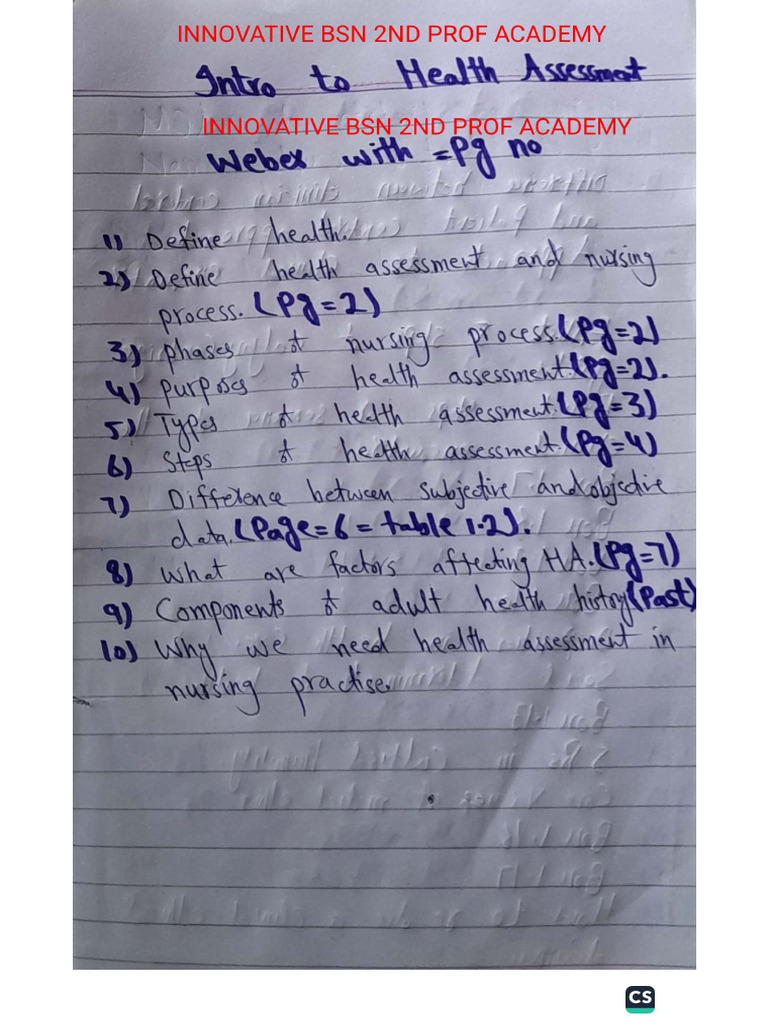 INNOVATIVE BSN 2ND PROF ACADEMY
Intro to Health Assessment
INNOVATIVE BSN 2ND PROF ACADEMY
Weber with =Pg no
1) Define health.
2) Define health assessment and nursing
process. (Pg=2)
3) phases of nursing process.(Pg=2)
4) purposes of health assessment.(Pg=2).
5) Types of health assessment.(Pg=3)
6) Steps of health assessment.(Pg=4)
7) Difference between subjective and objective
data.(Page=6=table 1.2).
8) What are factors affecting HA.(Pg=7)
9) Components of adult health history(Past)
10) Why we need health assessment in
nursing practise.
CS